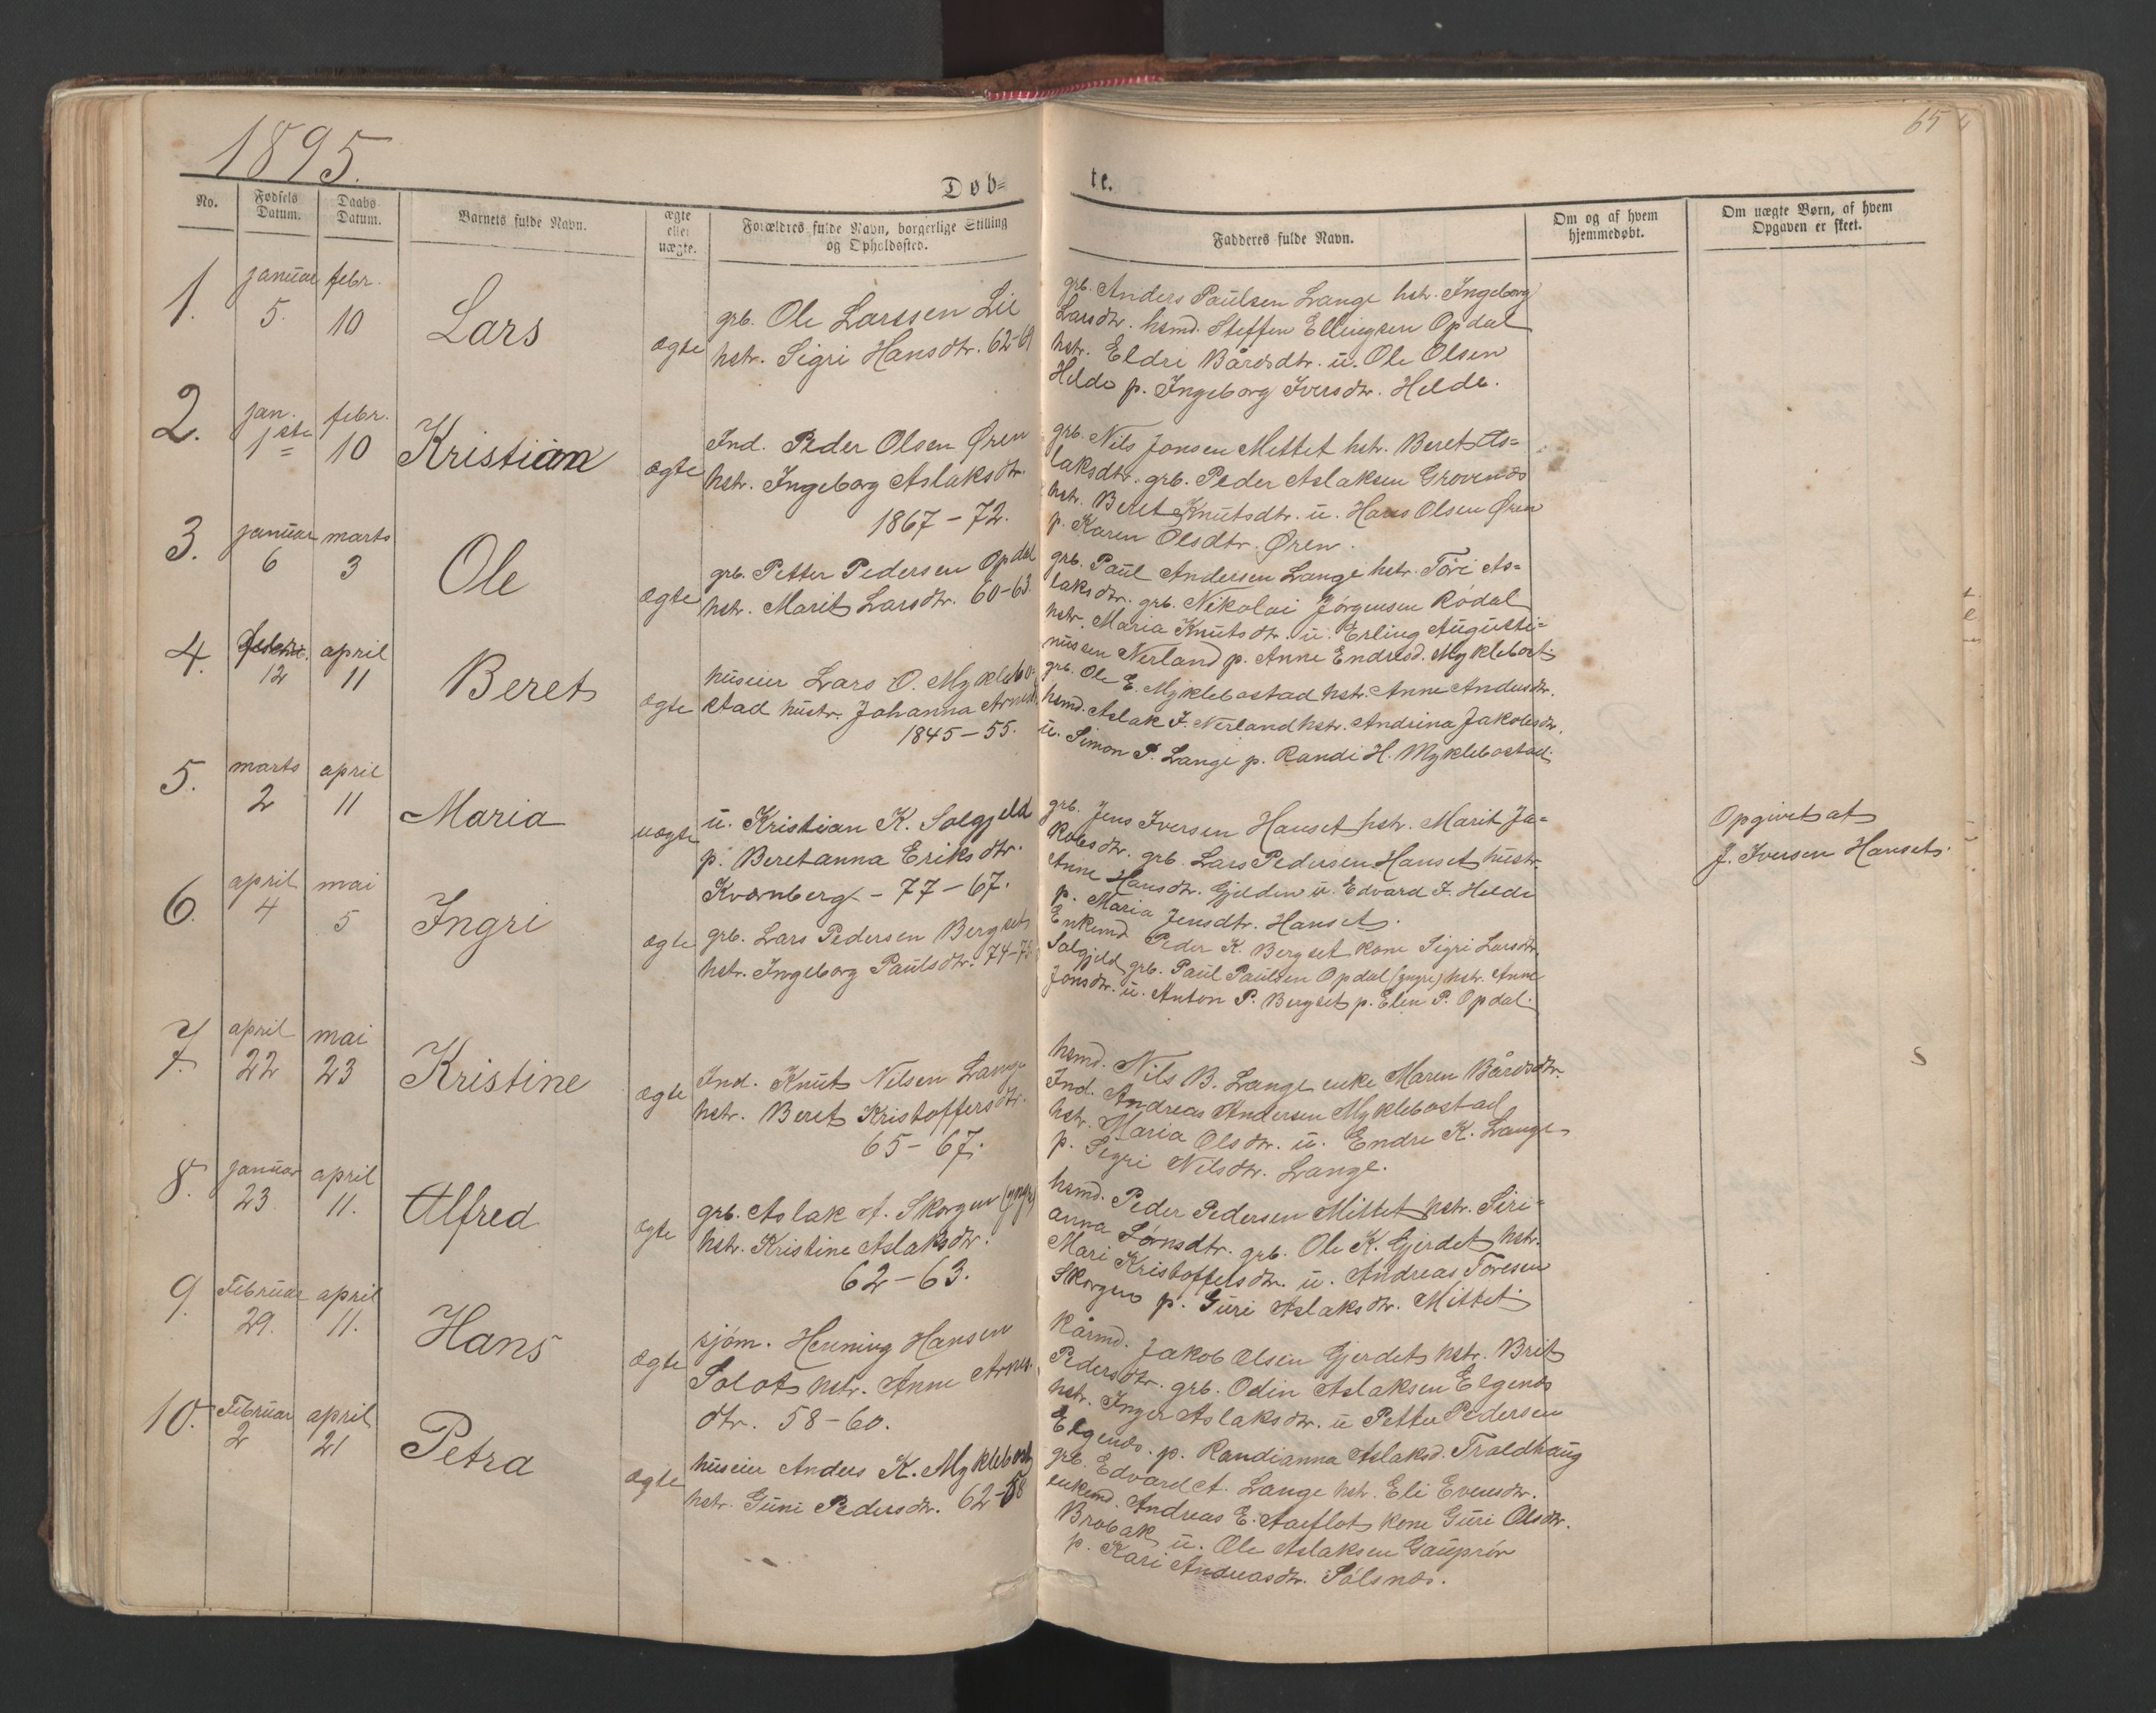 1895.
65
Døb=
te.
No.
Fødsels Datum.
Daabs Datum.
Barnets fulde Navn.
ægte eller uægte.
Forældres fulde Navn, borgerlige Stilling og Opholdssted.
Fadderes fulde Navn.
Om og af hvem hjemmedøbt.
Om uægte Børn, af hvem Opgaven er skeet.
1.
januar 5.
febr. 10
Lars
ægte
grb. Ole Larssen Lie
hstr. Sigri Hansdtr. 62-69
grb. Anders Paulsen Lange hstr. Ingeborg
Larsdtr. hsmd. Steffen Ellingsen Opdal
hstr. Eldri Bårdsdtr. u. Ole Olsen
Helde p. Ingeborg Iversdtr. Helde.
2.
jan. 1ste
febr. 10
Kristian
ægte
Ind. Peder Olsen Øren
hstr. Ingeborg Aslaksdtr.
1867-72.
grb. Nils Jonsen Mettet hstr. Beret As=
laksdtr. grb. Peder Aslaksen Grovenæs
hstr. Beret Knutsdtr. u. Hans Olsen Øren
p. Karen Olsdtr. Øren.
3.
januar 6
marts 3
Ole
ægte
grb. Petter Pedersen Opdal
hstr. Marit Larsdtr. 60-63.
grb. Paul Andersen Lange hstr. Tori As=
laksdtr. grb. Nikolai Jørgensen Rødal
hstr. Maria Knutsdtr. u. Erling Augusti=
nussen Nerland p. Anne Endresd. Myklebost.
4.
12
april 11
Beret
ægte
huseier Lars O. Myklebo-
stad hustr. Johanna Arnesd.
1845-55.
grb. Ole E. Myklebostad hstr. Anne Andersdtr.
hsmd. Aslak J. Nerland hstr. Andrina Jakobsdtr.
u. Simon P. Lange p. Randi H. Myklebostad.
5.
marts 2
april 11
Maria
uægte
u. Kristian K. Solgjeld
p. Beretanna Eriksdtr.
Kværnberg - 77-67.
grb. Jens Iversen Hanset hstr. Marit Ja=
kobsdtr. grb. Lars Pedersen Hanset hustr.
Anne Hansdtr. Gjelden u. Edvard I. Helde
p. Maria Jensdtr. Hanset.
Opgivet at
J. Iversen Hanset.
6.
april 4
mai 5
Ingri
ægte
grb. Lars Pedersen Bergset
hstr. Ingeborg Paulsdtr. 74-75
Enkemd. Peder K. Bergset kone Sigri Larsdtr.
Solgjeld, grb. Paul Paulsen Opdal (yngre) hstr. Anne
Jonsdtr. u. Anton P. Bergset p. Elen P. Opdal.
7.
april 22
mai 23
Kristine
ægte
Ind. Knut Nilsen Lange
hstr. Beret Kristoffersdtr.
65-67.
hsmd. Nils B. Lange enke Maren Bårdsdtr.
Ind. Andreas Andersen Myklebostad
hstr. Maria Olsdtr. u. Endre K. Lange
p. Sigri Nilsdtr. Lange.
S
8.
januar 23
april 11.
Alfred
ægte
grb. Aslak A. Skorgen (yngre)
hstr. Kristine Aslaksdtr.
62-63.
hsmd. Peder Pedersen Mittet hstr. Siri=
anna Sørnsdtr. grb. Ole K. Gjerdet hstr.
Mari Kristoffersdtr. u. Andreas Toresen
Skorgen p. Guri Aslaksdtr. Mittet.
9.
Februar 29.
april 11.
Hans
ægte
sjøm. Henning Hansen
Solot hstr. Anne Arnes-
dtr. 58-60.
Kårmd. Jakob Olsen Gjerdet hstr. Brit
Pedersdtr. grb. Odin Aslaksen Elgenæs
hstr. Inger Aslaksdtr. u. Petter Pedersen
Elgenæs. p. Randianna Aslaksd. Troldhaug
10.
Februar 2
april 21
Petra
ægte
huseier Anders K. Myklebost
hstr. Guni Pedersdtr. 62-58
grb. Edvard A. Lange hstr. Eli Evensdtr.
enkemd. Andreas E. Aarflot kone Guri Olsdtr.
Brobak u. Ole Aslaksen Gauprør
p. Kari Andreasdtr. Sølsnæs.